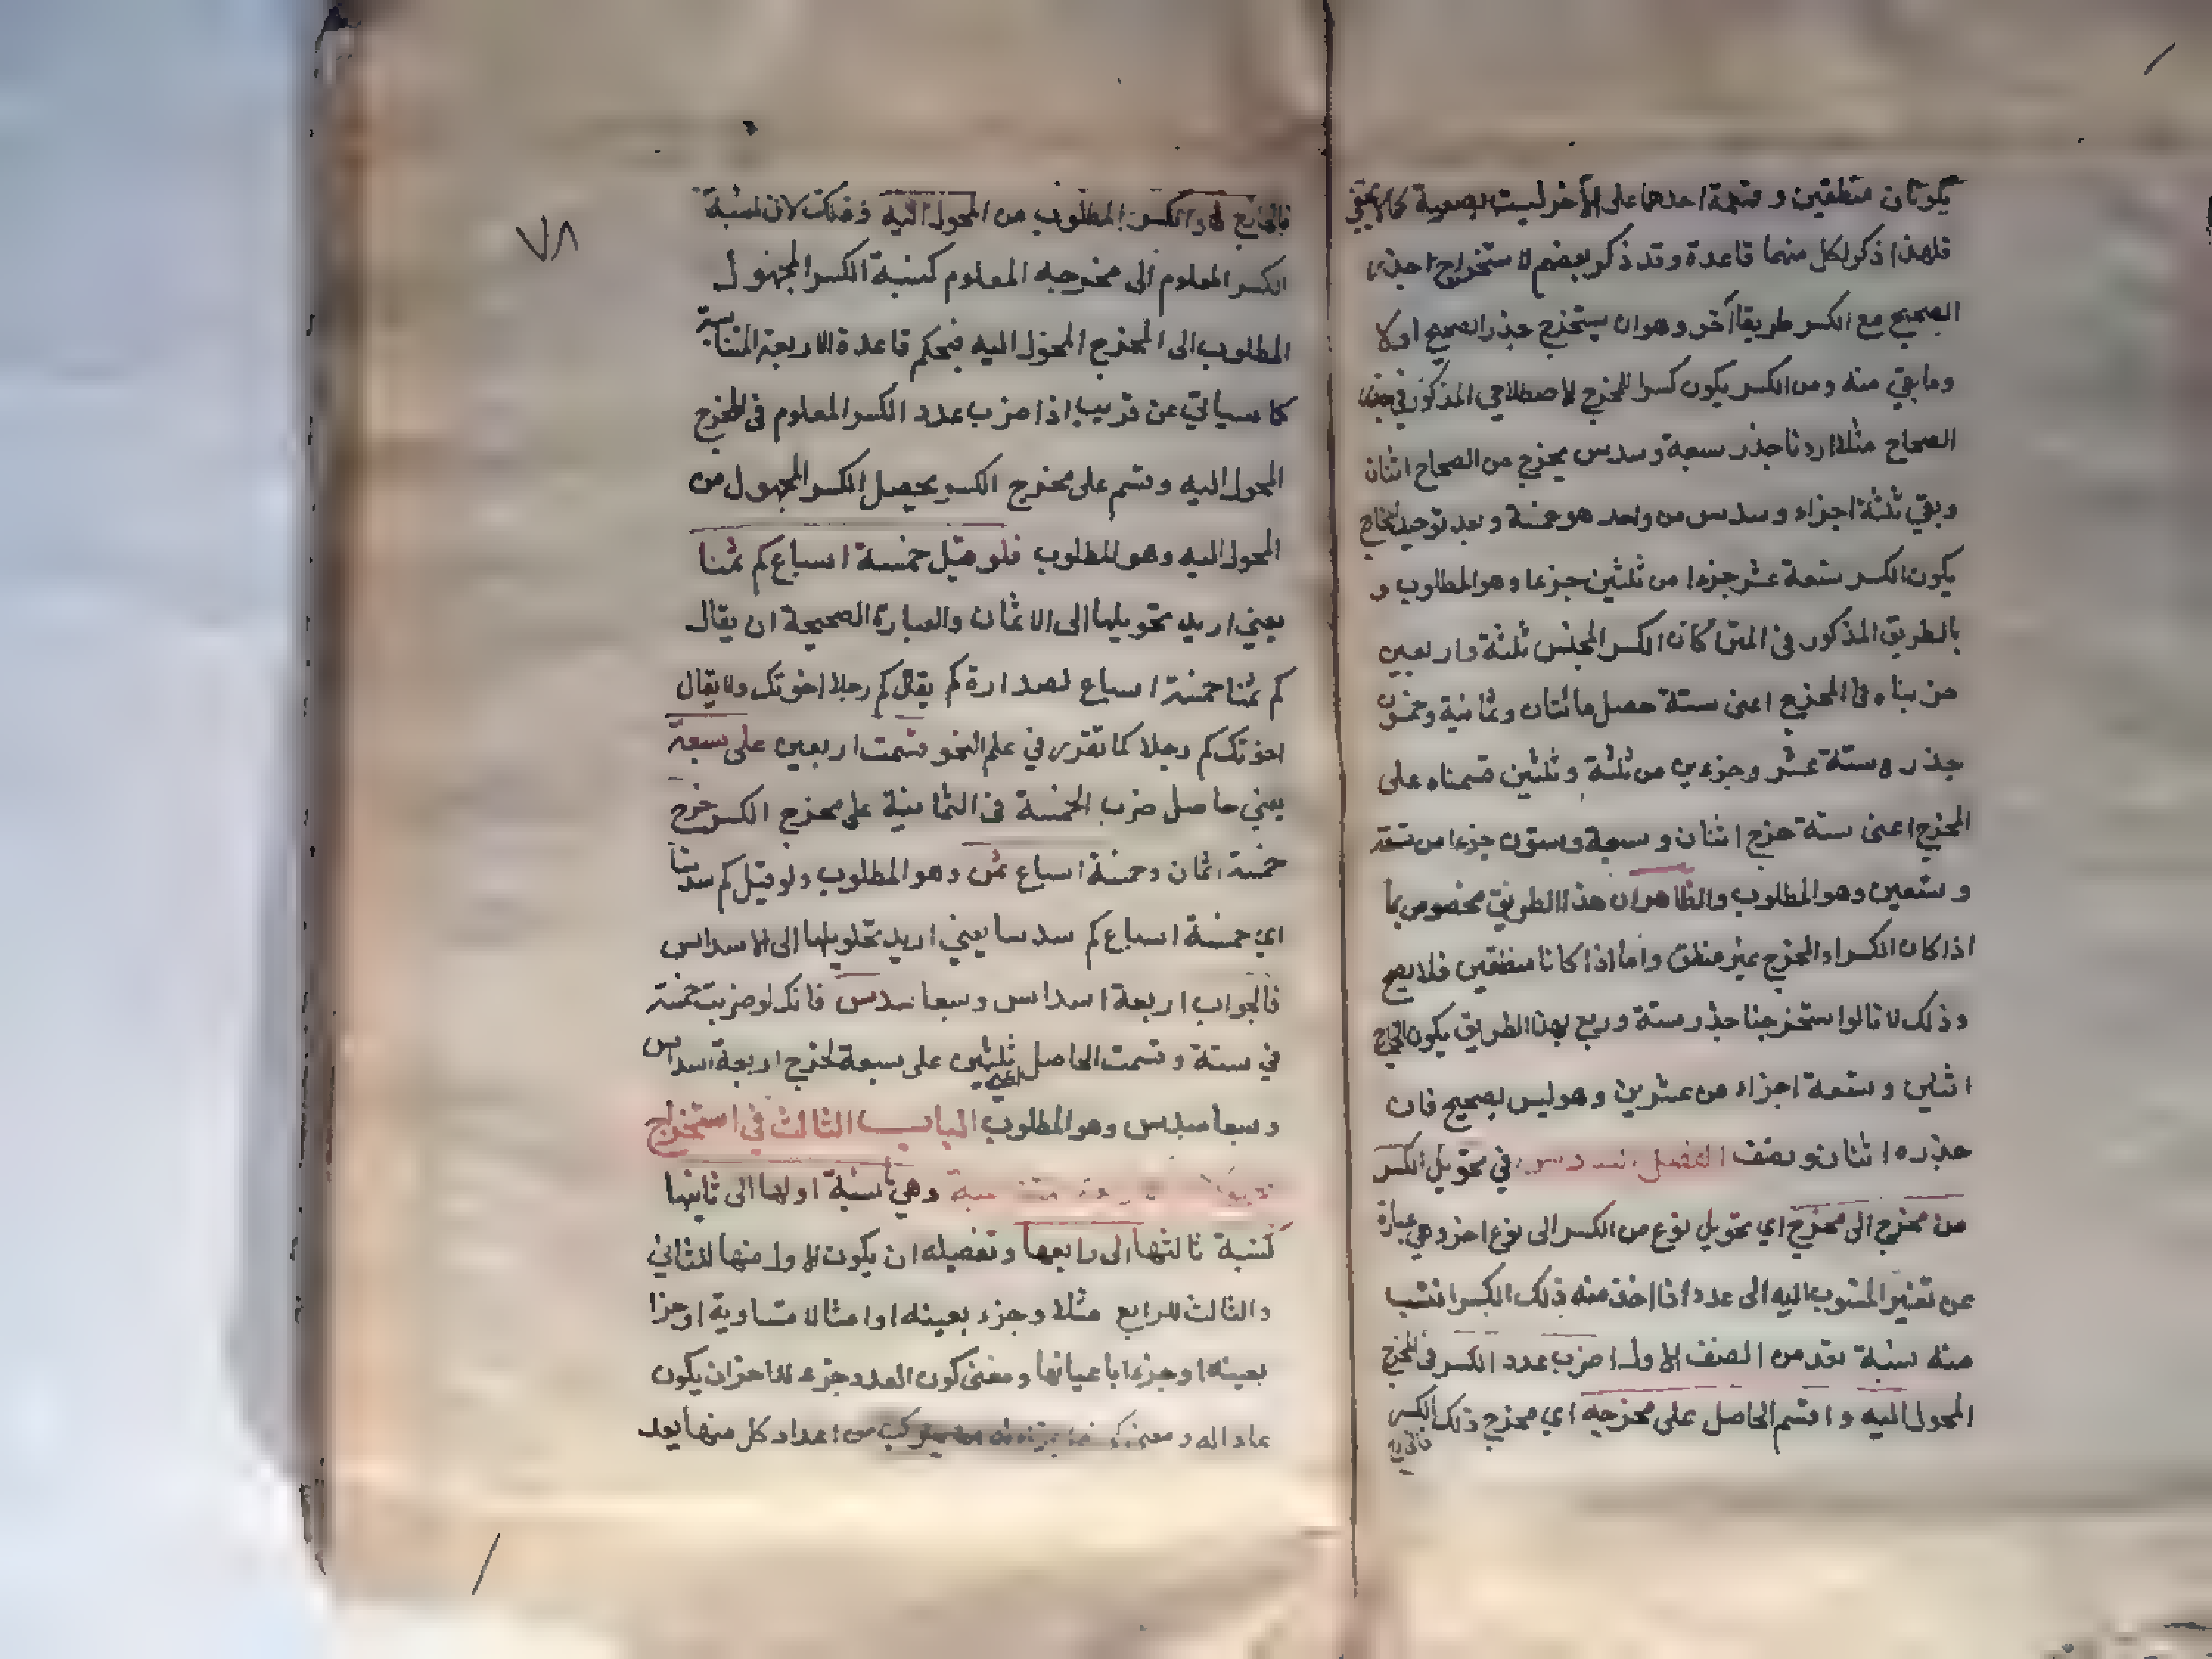 يكونان منطقين وقسمة احدهما على الآخر ليست بصعبة كما لا يخفى
فلهذا ذكر لكل منهما قاعدة وقد ذكر بعضهم لاستخراج جذر
الصحيح مع الكسر طريقا آخر وهو ان يستخرج جذر الصحيح اولا
وما بقي منه ومن الكسر يكون كسرا للمخرج الاصطلاحي المذكور في جذر
الصحاح مثلا اردنا جذر سبعة وسدس يخرج من الصحاح اثنان
وبقي ثلثة اجزاء وسدس من واحد هو خمسة وبعد توحيد المخارج
يكون الكسر تسعة عشر جزءا من ثلثين جزءا وهو المطلوب و
بالطريق المذكور في المتن كان الكسر المجنس ثلثة واربعين
ضربناه في المخرج اعنى ستة حصل مائتان وثمانية وخمسون
جذره ستة عشر وجزءين من ثلثة وثلثين قسمناه على
المخرج اعنى ستة خرج اثنان وسبعة وستون جزءا من تسعة
وتسعين وهو المطلوب والظاهر ان هذا الطريق مخصوص بما
اذا كان الكسر او المخرج غير منطق واما اذا كانا منطقين فلا يصح
وذلك لانا لو استخرجنا جذر ستة وربع بهذا الطريق يكون الخارج
اثنين وتسعة اجزاء من عشرين وهو ليس بصحيح فان
جذره اثنان ونصف الفصل السادس في تحويل الكسر
من مخرج الى مخرج اي تحويل نوع من الكسر الى نوع اخر وهي عبارة
عن تغيير المنسوب اليه الى عدد اذا اخذ منه ذلك الكسر انتسب
منه نسبة تعد من الصنف الاول اضرب عدد الكسر في المخرج
المحول اليه واقسم الحاصل على مخرجه اي مخرج ذلك الكسر
فالخارج
٧٨
فالخارج هو الكسر المطلوب من المحول اليه وذلك لان نسبة
الكسر المعلوم الى مخرجه المعلوم كنسبة الكسر المجهول
المطلوب الى المخرج المحول اليه فبحكم قاعدة الاربعة المتناسبة
كما سيأتي عن قريب اذا ضرب عدد الكسر المعلوم في المخرج
المحول اليه وقسم على مخرج الكسر يحصل الكسر المجهول من
المحول اليه وهو المطلوب فلو قيل خمسة اسباع كم ثمنا
يعني اريد تحويلها الى الاثمان والعبارة الصحيحة ان يقال
كم ثمنا خمسة اسباع لصدارة كم يقال كم رجلا اخوتك ولا يقال
اخوتك كم رجلا كما تقرر في علم النحو قسمت اربعين على سبعة
يعني حاصل ضرب الخمسة في الثمانية على مخرج الكسر خرج
خمسة اثمان وخمسة اسباع ثمن وهو المطلوب ولو قيل كم سدسا
اي خمسة اسباع كم سدسا يعني اريد تحويلها الى الاسداس
فالجواب اربعة اسداس وسبعا سدس فانك لو ضربت خمسة
في ستة وقسمت الحاصل اعني ثلثين على سبعة لخرج اربعة اسداس
وسبعا سدس وهو المطلوب الباب الثالث في استخراج
وهي ما نسبة اولها الى ثانيها
كنسبة ثالثها الى رابعها وتفصيله ان يكون الاول منها للثاني
والثالث للرابع مثلا وجزء بعينه او امثالا متساوية او جزا
بعينه او جزءا باعيانها ومعنى كون العدد جزء للاخر ان يكون
عادا له ومعنى من اعداد كل منها يعد